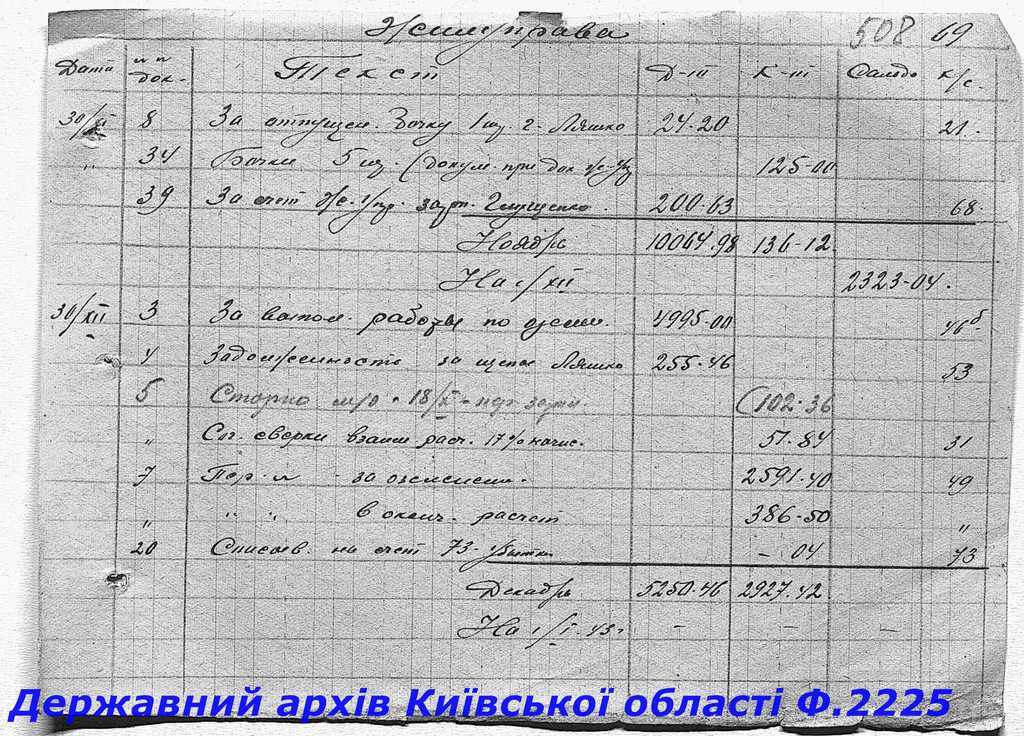 Жилуправа 508 69
Дата №№ док. Текст Д-т К-т Сальдо к/с.
30/XI 8 За отпущен. бочку 1 шт. г. Ляшко 24-20 21.
" 34 Бочки 5 шт. (докум. при док. 125-00
39 За счет Ж-Упр. Глущенко. 200-63 68.
Ноябрь 10064.98 136-12
На 1/XII 2323-04.
30/XII 3 За выпол. работы по 4995-00 46б.
4 Задолженность за щепы Ляшко 255.46 53
5 Сторно м/о 18/X (102.36
" Сл. сверки взаим. расч. 17% начис. 51.84 31
7 Пер-л - за 2591-40 49
" " " в оконч. расчет 386-50 "
20 Списыв. на счет 73- - 04 73
Декабрь 5250.46 2927.42
На 1/I.43г. - - -
Державний архів Київської області Ф.2225